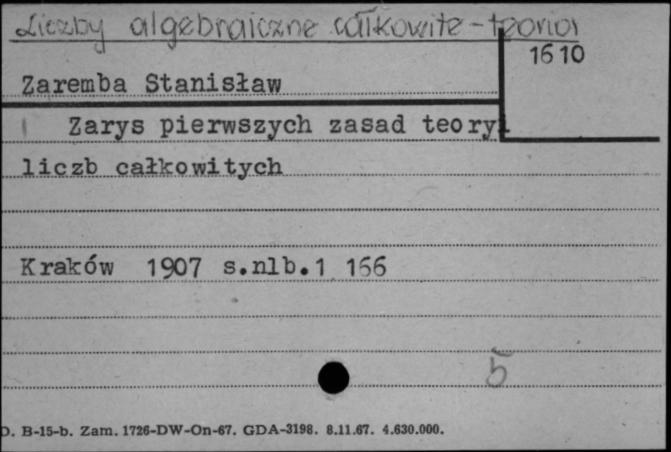 Liczby algebraiczne całkowite - teoria
1610
Zaremba Stanisław
Zarys pierwszych zasad teoryi
liczb całkowitych
Kraków 1907 s.nlb.1 166
5
D. B-15-b. Zam. 1726-DW-On-67. GDA-3198. 8.11.67. 4.630.000.